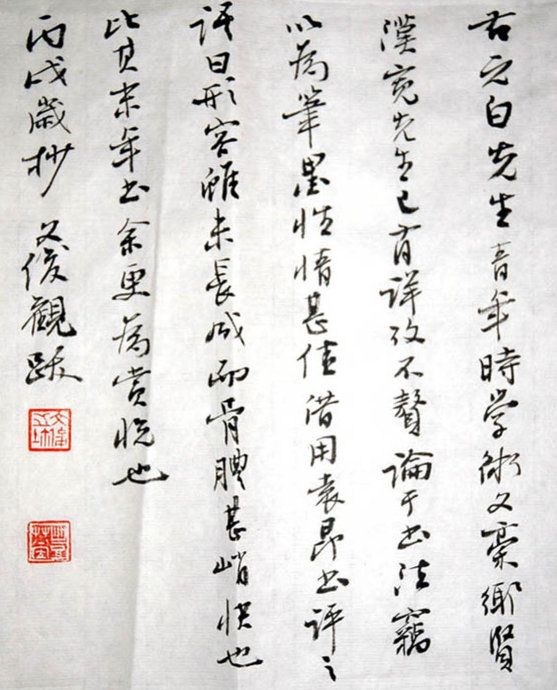 右元白先生青年時學術文稾鄉賢
漢寬先生已有詳攷不贅論于書法竊
以為筆墨性情甚佳借用袁昂書評之
評曰形容雖未長成而骨體甚峭快也
比其末年書余更為賞悦也
丙戌歲杪 文俊觀跋